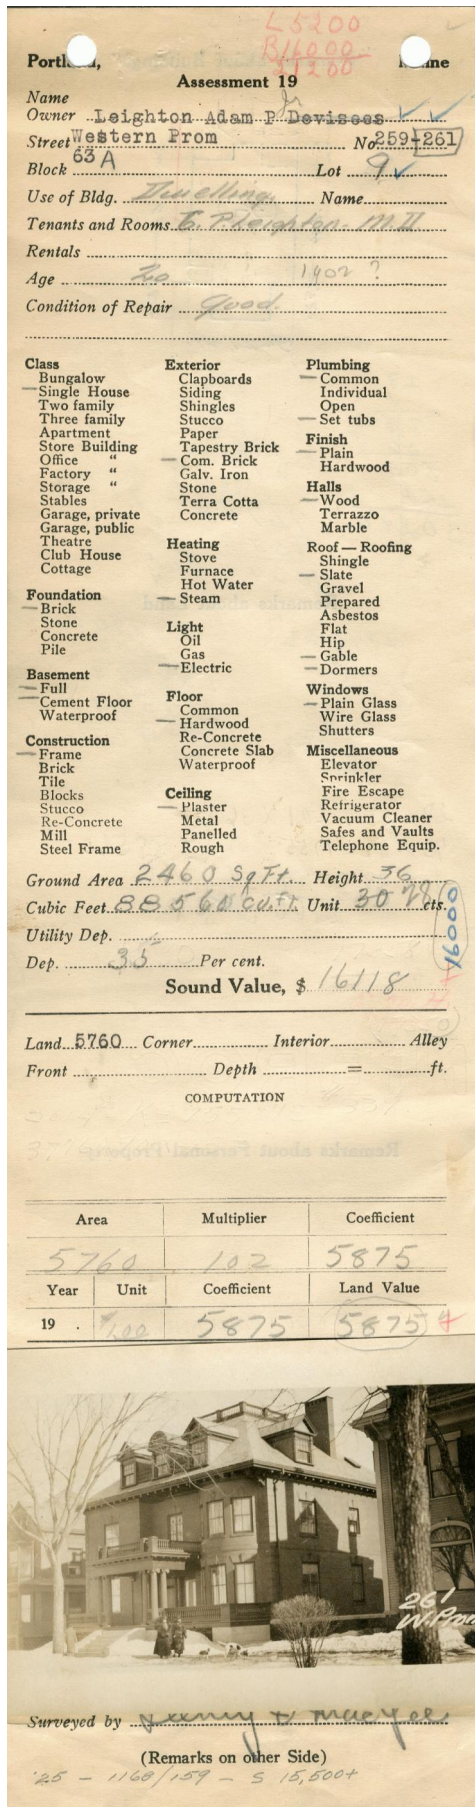 L5200
B16000
21200
Portland, Maine
Assessment 19
Name Jr
Owner Leighton Adam P Devisees
Street Western Prom No 259-261
Block 63 A Lot 9
Use of Bldg. Dwelling. Name
Tenants and Rooms E. P. Leighton - M II
Rentals
Age 20 1902 ?
Condition of Repair Good.
Class
Bungalow
Single House
Two family
Three family
Apartment
Store Building
Office "
Factory "
Storage "
Stables
Garage, private
Garage, public
Theatre
Club House
Cottage
Foundation
Brick
Stone
Concrete
Pile
Basement
Full
Cement Floor
Waterproof
Construction
Frame
Brick
Tile
Blocks
Stucco
Re-Concrete
Mill
Steel Frame
Exterior
Clapboards
Siding
Shingles
Stucco
Paper
Tapestry Brick
Com. Brick
Galv. Iron
Stone
Terra Cotta
Concrete
Heating
Stove
Furnace
Hot Water
Steam
Light
Oil
Gas
Electric
Floor
Common
Hardwood
Re-Concrete
Concrete Slab
Waterproof
Ceiling
Plaster
Metal
Panelled
Rough
Plumbing
Common
Individual
Open
Set tubs
Finish
Plain
Hardwood
Halls
Wood
Terrazzo
Marble
Roof — Roofing
Shingle
Slate
Gravel
Prepared
Asbestos
Flat
Hip
Gable
Dormers
Windows
Plain Glass
Wire Glass
Shutters
Miscellaneous
Elevator
Sprinkler
Fire Escape
Refrigerator
Vacuum Cleaner
Safes and Vaults
Telephone Equip.
Ground Area 2460 Sq Ft. Height 36
Cubic Feet 88560 cu.ft. Unit 30 28 cts.
16000
Utility Dep.
Dep. 35 Per cent.
Sound Value, $ 16118
Land 5760 Corner Interior Alley
Front Depth = ft.
COMPUTATION
Area Multiplier Coefficient
5760 102 5875
Year Unit Coefficient Land Value
19 . 1.00 5875 5875
261
W. Prom
Surveyed by
(Remarks on other Side)
'25 - 1168/159 - S 15,500+